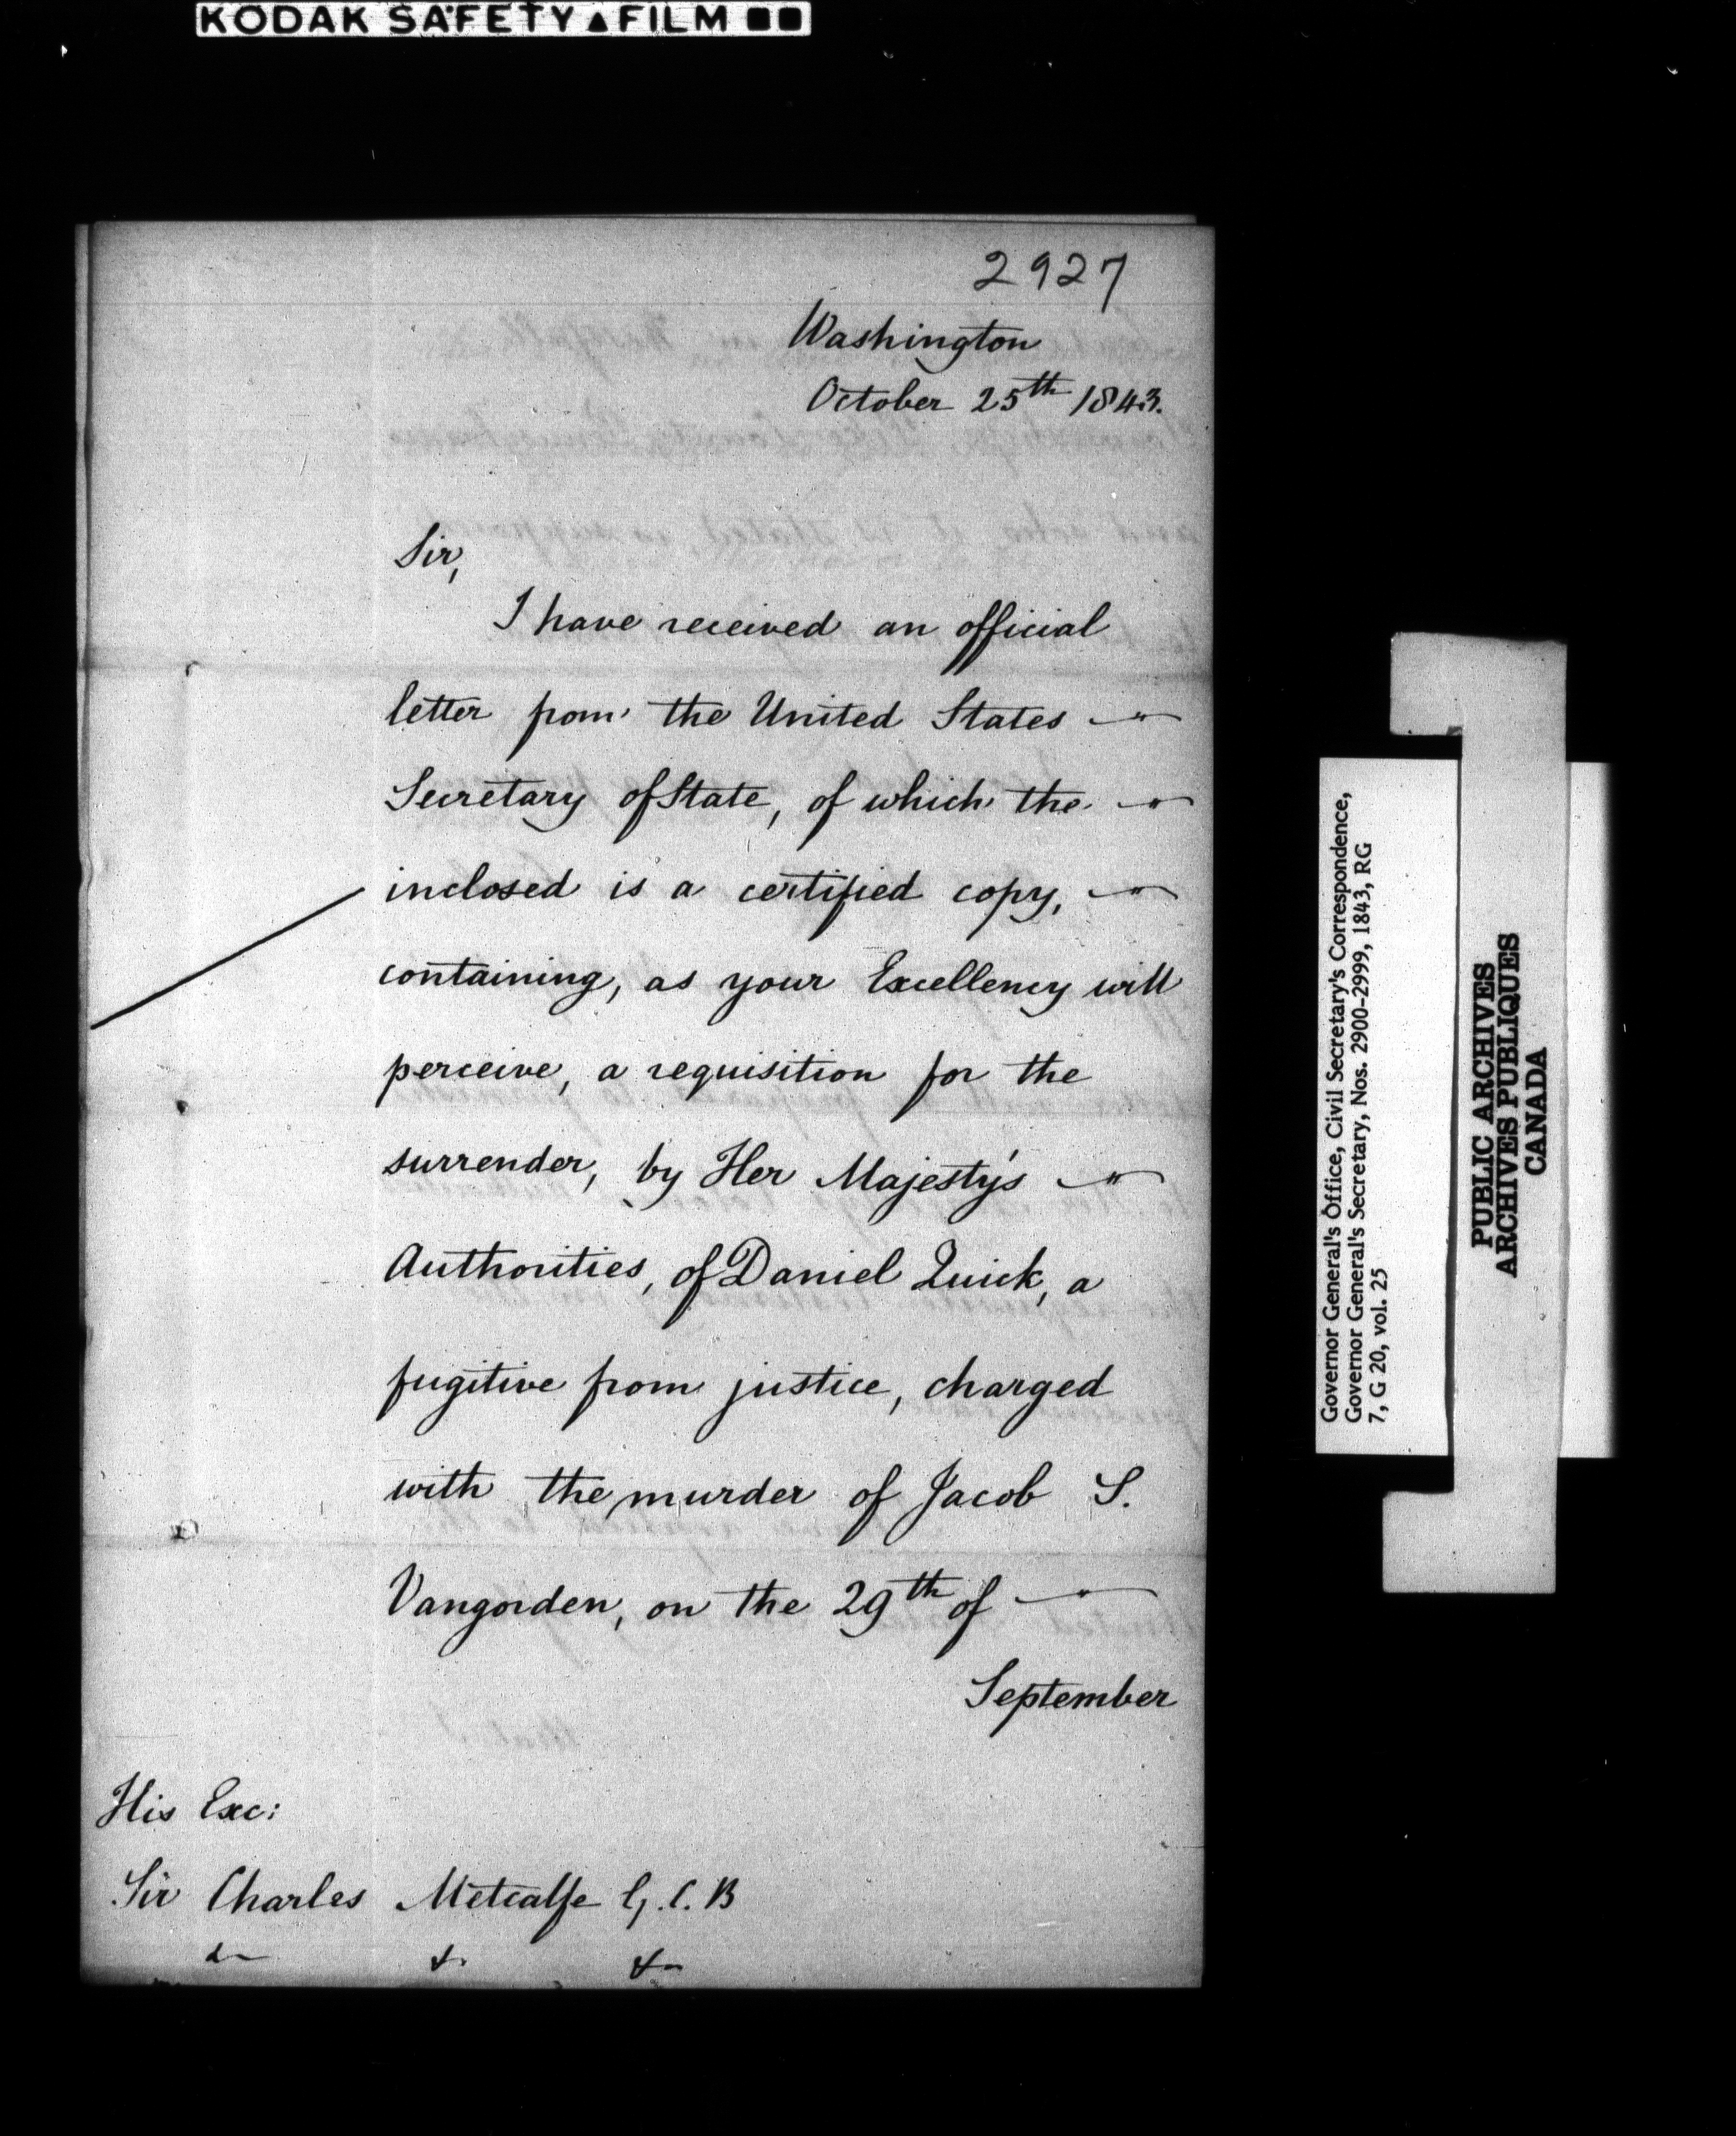 KODAK SAFETY ▲ FILM ■■
2927
Washington
October 25th 1843.
Sir,
I have received an official
letter from the United States —
Secretary of State, of which the —
inclosed is a certified copy, —
containing, as your Excellency will
perceive, a requisition for the
surrender, by Her Majesty's —
Authorities, of Daniel Quick, a
fugitive from justice, charged
with the murder of Jacob S.
Vangorden, on the 29th of —
September
His Exc:
Sir Charles Metcalfe G.C.B
& & &
Governor General's Office, Civil Secretary's Correspondence,
Governor General's Secretary, Nos. 2900-2999, 1843, RG
7, G 20, vol. 25
PUBLIC ARCHIVES
ARCHIVES PUBLIQUES
CANADA